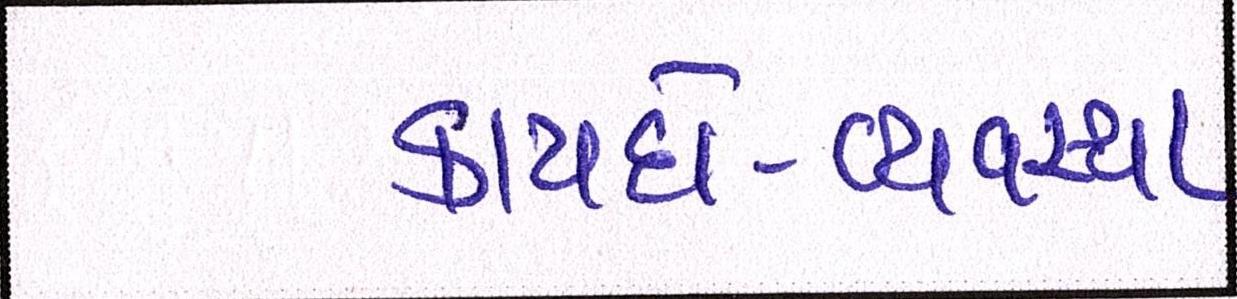 કાયદો-વ્યવસ્થા